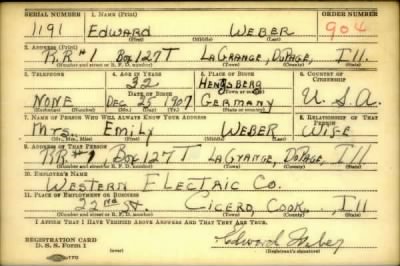 SERIAL NUMBER 1. NAME (Print) ORDER NUMBER
1191 EDWARD WEBER 904
(First) (Middle) (Last)
2. ADDRESS (Print)
R.R #1 Box 127T LaGrange, DuPage, Ill
(Number and street or R. F. D. number) (Town) (County) (State)
3. TELEPHONE 4. AGE IN YEARS 5. PLACE OF BIRTH 6. COUNTRY OF CITIZENSHIP
32
DATE OF BIRTH (Town or county)
NONE Dec 25 1907 Germany U.S.A.
(Exchange) (Number) (Mo.) (Day) (Yr.) (State or country)
7. NAME OF PERSON WHO WILL ALWAYS KNOW YOUR ADDRESS 8. RELATIONSHIP OF THAT PERSON
Mrs. Emily WEBER Wife
(Mr., Mrs., Miss) (First) (Middle) (Last)
9. ADDRESS OF THAT PERSON
RR #1, Box 127T LaGrange, DuPage, Ill
(Number and street or R. F. D. number) (Town) (County) (State)
10. EMPLOYER'S NAME
Western Electric Co.
11. PLACE OF EMPLOYMENT OR BUSINESS
22nd St. Cicero, Cook, Ill
(Number and street or R. F. D. number) (Town) (County) (State)
I AFFIRM THAT I HAVE VERIFIED ABOVE ANSWERS AND THAT THEY ARE TRUE.
REGISTRATION CARD
D. S. S. Form 1 Edward Weber
(Registrant's signature)